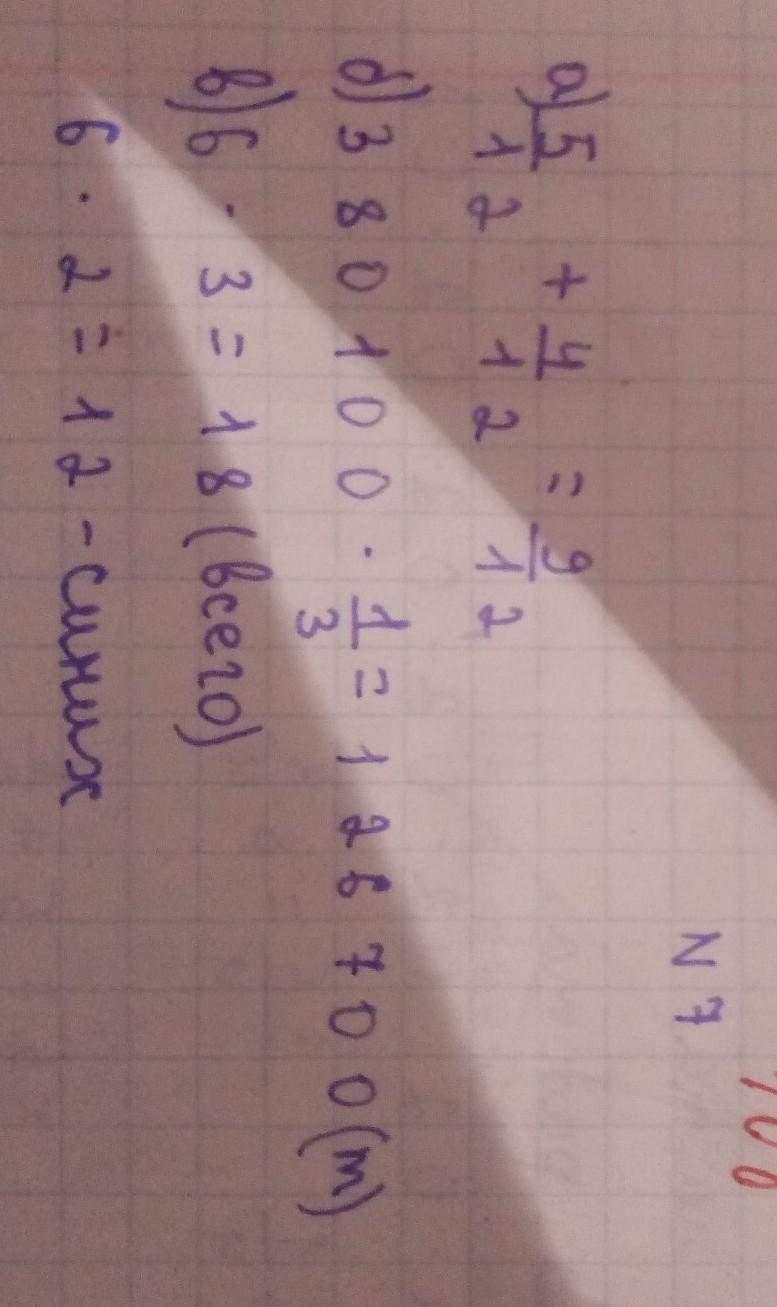 100
N 7
а) 5/12 + 4/12 = 9/12
б) 380100 · 1/3 = 126700 (т)
в) 6 · 3 = 18 (всего)
6 · 2 = 12 - синих